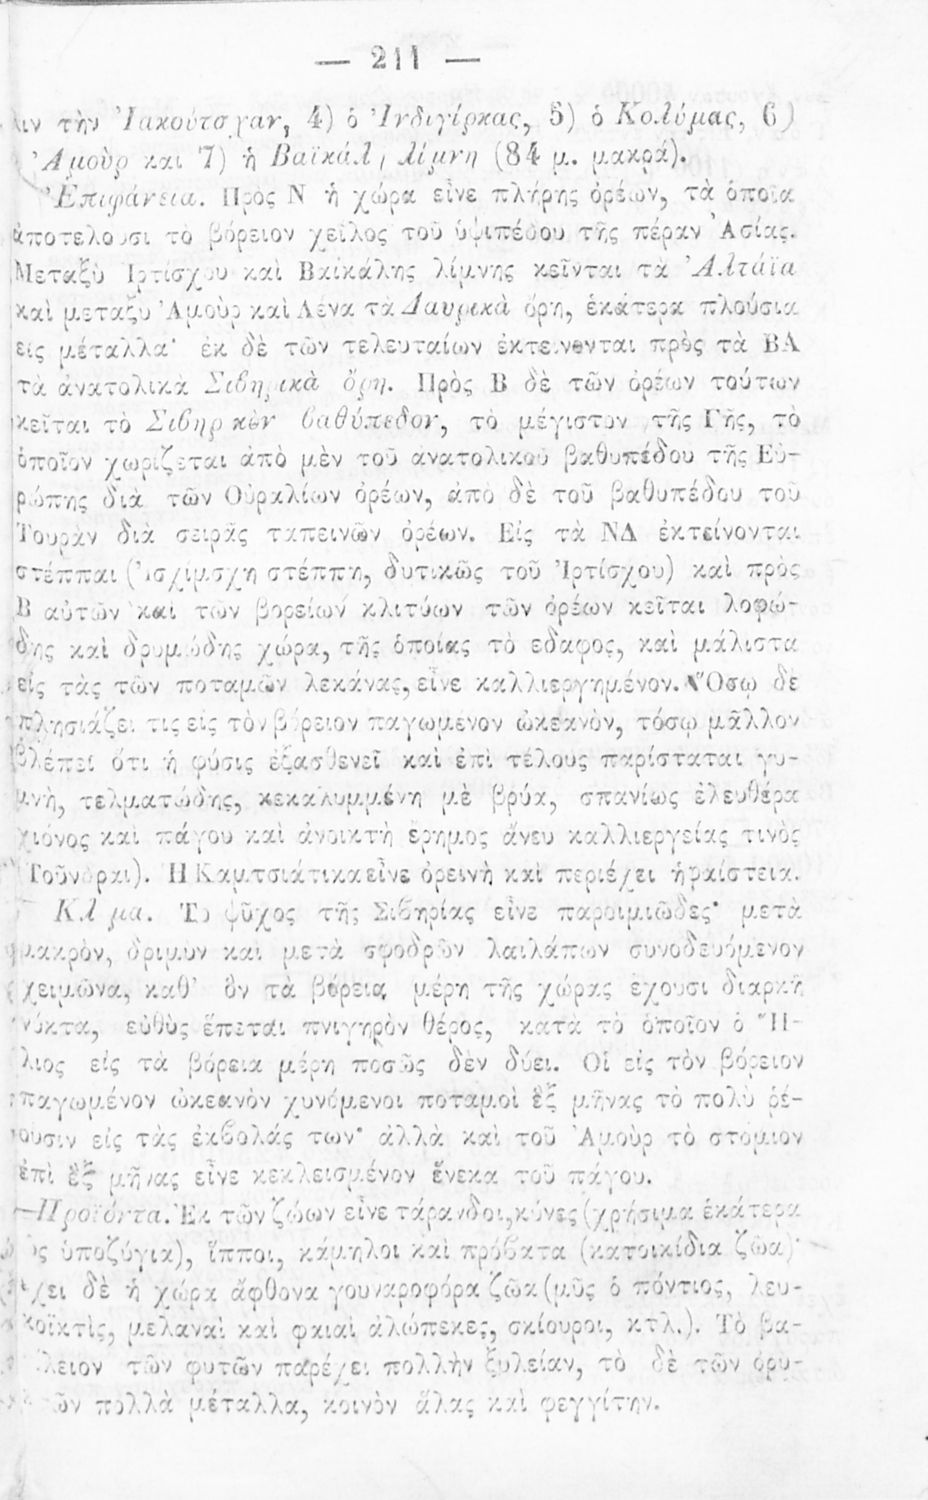 — 211 —
λιν τὴν Ἰακούτσχαν, 4) ὁ Ἰνδιγίρκας, 5) ὁ Κολύμας, 6)
Ἀμοὺρ καὶ 7) ἡ Βαϊκάλ λίμνη (84 μ. μακρά).
Ἐπιφάνεια. Πρὸς Ν ἡ χώρα εἶνε πλήρης ὀρέων, τὰ ὁποῖα
ἀποτελοῦσι τὸ βόρειον χεῖλος τοῦ ὑψιπέδου τῆς πέραν Ἀσίας.
Μεταξὺ Ἰρτίσχου καὶ Βαϊκάλης λίμνης κεῖνται τὰ Ἀλτάϊα
καὶ μεταξὺ Ἀμοὺρ καὶ Λένα τὰ Δαυρικὰ ὄρη, ἑκάτερα πλούσια
εἰς μέταλλα· ἐκ δὲ τῶν τελευταίων ἐκτείνονται πρὸς τὰ ΒΑ
τὰ ἀνατολικὰ Σιβηρικὰ ὄρη. Πρὸς Β δὲ τῶν ὀρέων τούτων
κεῖται τὸ Σιβηρικὸν βαθύπεδον, τὸ μέγιστον τῆς Γῆς, τὸ
ὁποῖον χωρίζεται ἀπὸ μὲν τοῦ ἀνατολικοῦ βαθυπέδου τῆς Εὐ-
ρώπης διὰ τῶν Οὐραλίων ὀρέων, ἀπὸ δὲ τοῦ βαθυπέδου τοῦ
Τουρὰν διὰ σειρᾶς ταπεινῶν ὀρέων. Εἰς τὰ ΝΔ ἐκτείνονται
στέππαι (Ἰσχίμσχη στέππη, δυτικῶς τοῦ Ἰρτίσχου) καὶ πρὸς
Β αὐτῶν καὶ τῶν βορείων κλιτύων τῶν ὀρέων κεῖται λοφώ-
δης καὶ δρυμώδης χώρα, τῆς ὁποίας τὸ ἔδαφος, καὶ μάλιστα
εἰς τὰς τῶν ποταμῶν λεκάνας, εἶνε καλλιεργημένον. Ὅσῳ δὲ
πλησιάζει τις εἰς τὸν βόρειον παγωμένον ὠκεανὸν, τόσῳ μᾶλλον
βλέπει ὅτι ἡ φύσις ἐξασθενεῖ καὶ ἐπὶ τέλους παρίσταται γυ-
μνὴ, τελματώδης, κεκαλυμμένη μὲ βρύα, σπανίως ἐλευθέρα
χιόνος καὶ πάγου καὶ ἀνοικτὴ ἔρημος ἄνευ καλλιεργείας τινὸς
(Τοῦνδραι). Ἡ Καμτσιάτικα εἶνε ὀρεινὴ καὶ περιέχει ἡφαίστεια.
Κλῖμα. Τὸ ψῦχος τῆς Σιβηρίας εἶνε παροιμιῶδες· μετὰ
μακρὸν, δριμὺν καὶ μετὰ σφοδρῶν λαιλάπων συνοδευόμενον
χειμῶνα, καθ' ὃν τὰ βόρεια μέρη τῆς χώρας ἔχουσι διαρκῆ
νύκτα, εὐθὺς ἕπεται πνιγηρὸν θέρος, κατὰ τὸ ὁποῖον ὁ Ἥ-
λιος εἰς τὰ βόρεια μέρη ποσῶς δὲν δύει. Οἱ εἰς τὸν βόρειον
παγωμένον ὠκεανὸν χυνόμενοι ποταμοὶ ἓξ μῆνας τὸ πολὺ ῥέ-
ουσιν εἰς τὰς ἐκβολάς των· ἀλλὰ καὶ τοῦ Ἀμοὺρ τὸ στόμιον
ἐπὶ ἓξ μῆνας εἶνε κεκλεισμένον ἕνεκα τοῦ πάγου.
Προϊόντα. Ἐκ τῶν ζώων εἶνε τάρανδοι, κύνες (χρήσιμα ἑκάτερα
ὡς ὑποζύγια), ἵπποι, κάμηλοι καὶ πρόβατα (κατοικίδια ζῶα)·
ἔχει δὲ ἡ χώρα ἄφθονα γουναροφόρα ζῶα (μῦς ὁ πόντιος, λευ-
κοϊκτὶς, μελαναὶ καὶ φαιαὶ ἀλώπεκες, σκίουροι, κτλ.). Τὸ βα-
σίλειον τῶν φυτῶν παρέχει πολλὴν ξυλείαν, τὸ δὲ τῶν ὀρυ-
κτῶν πολλὰ μέταλλα, κοινὸν ἅλας καὶ φεγγίτην.